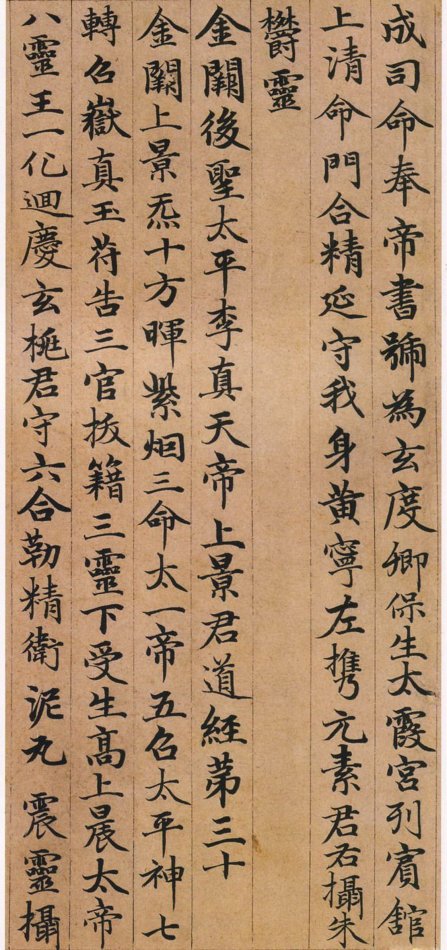 成司命奉帝書號為玄度卿保生太霞宮列賓館
上清命門合精延守我身黃寧左携元素君右攝朱
欝靈
金闕後聖太平李真天帝上景君道經苐三十
金闕上景炁十方暉紫烟三命太一帝五召太平神七
轉召嶽真王苻告三官拔籍三靈下受生高上晨太帝
八靈王一化迴慶玄桃君守六合勒精衛泥丸 震靈攝